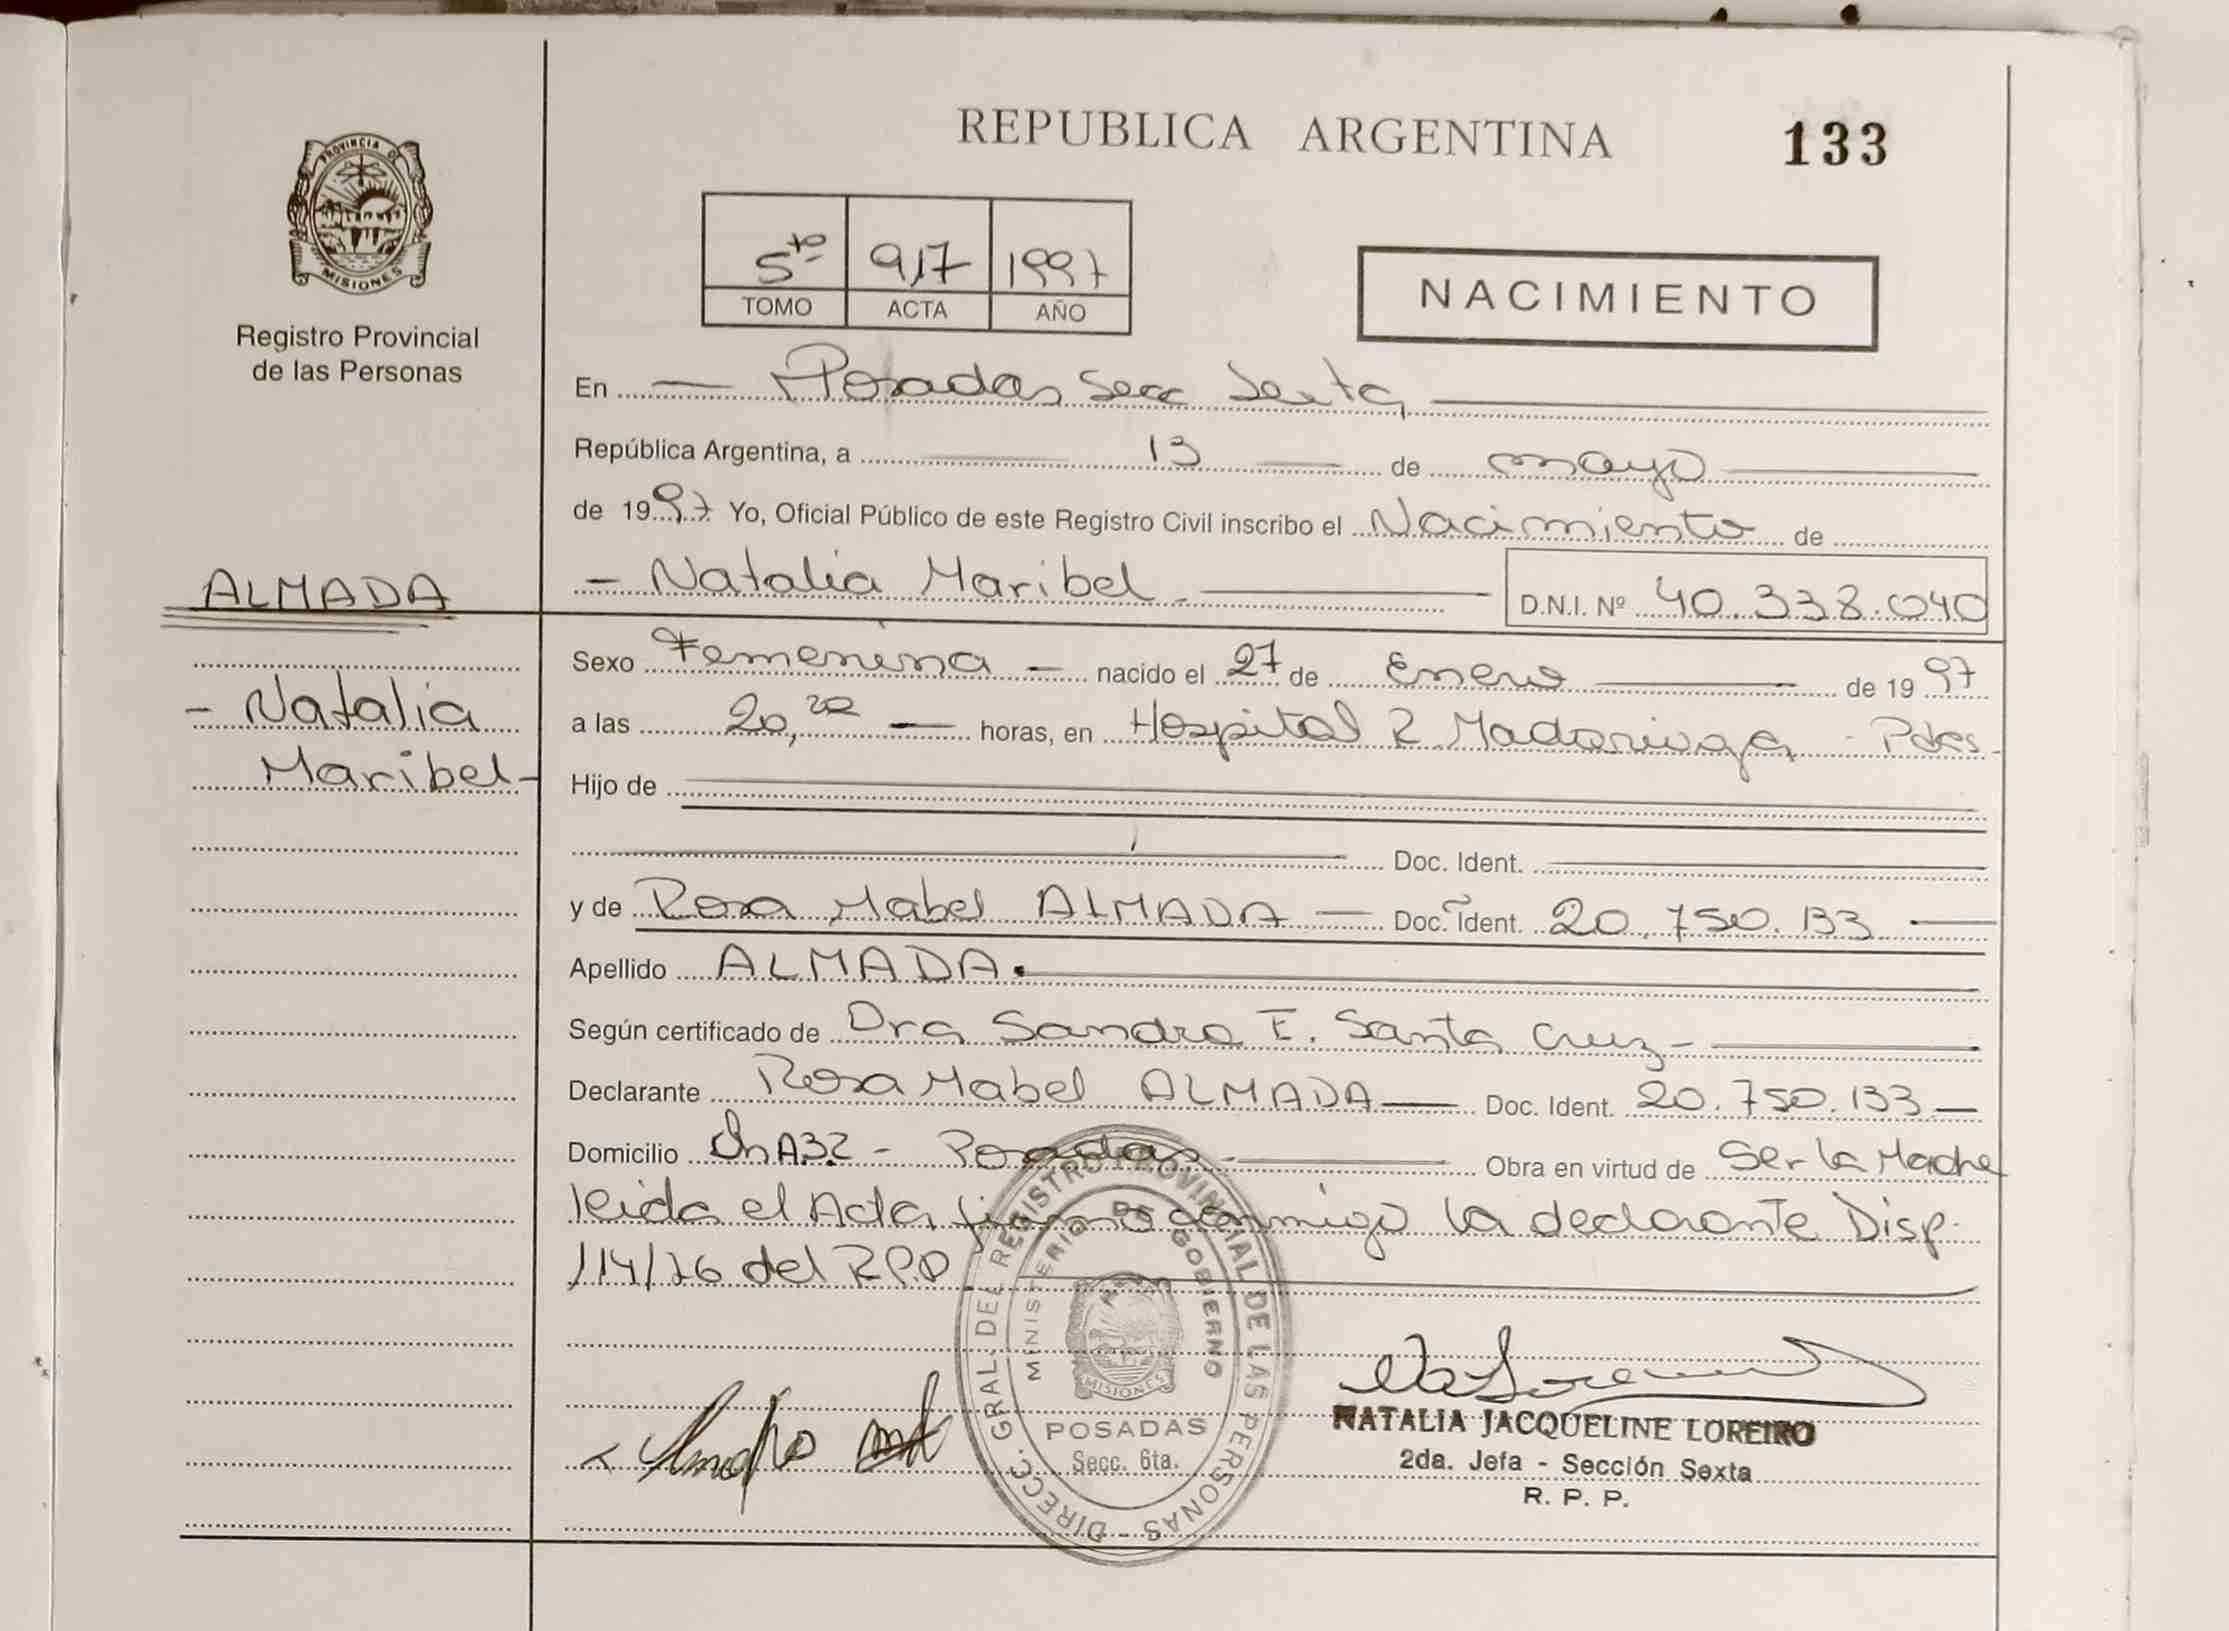 REPUBLICA ARGENTINA
133
PROVINCIA D
MISIONES
Registro Provincial
de las Personas
5to 917 1997
TOMO ACTA AÑO
NACIMIENTO
En Posadas Secc Sexta
República Argentina, a 13 de mayo
de 1997 Yo, Oficial Público de este Registro Civil inscribo el Nacimiento de
- Natalia Maribel - D.N.I. Nº 40.338.040
ALMADA
- Natalia
Maribel -
Sexo Femenina - nacido el 27 de Enero de 1997
a las 20, horas, en Hospital R Madariaga - Pdas -
Hijo de
Doc. Ident.
y de Rosa Mabel ALMADA - Doc. Ident. 20.750.133
Apellido ALMADA.
Según certificado de Dra Sandra E. Santa Cruz -
Declarante Rosa Mabel ALMADA - Doc. Ident. 20.750.133 -
Domicilio A32 - Posadas - Obra en virtud de Ser la Madre
leida el Acta firma conmigo la declarante Disp.
114/76 del
DIRECC. GRAL. DEL REGISTRO PROVINCIAL DE LAS PERSONAS -
MINISTERIO DE GOBIERNO
MISIONES
POSADAS
Secc. 6ta.
NATALIA JACQUELINE LOREIRO
2da. Jefa - Sección Sexta
R. P. P.